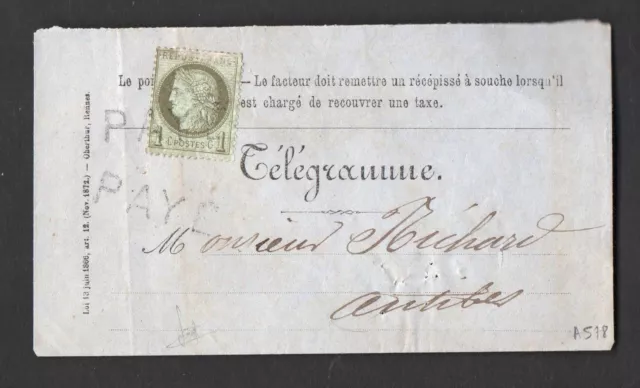 RÉPUB FRANC
Le poi — Le facteur doit remettre un récépissé à souche lorsqu'il
est chargé de recouvrer une taxe.
1 C. POSTES C. 1
PA
Télégramme.
PAYÉ
Monsieur Richard
Antibes
A 518
Loi 13 juin 1866, art. 12. (Nov. 1872.) — Oberthur, Rennes.